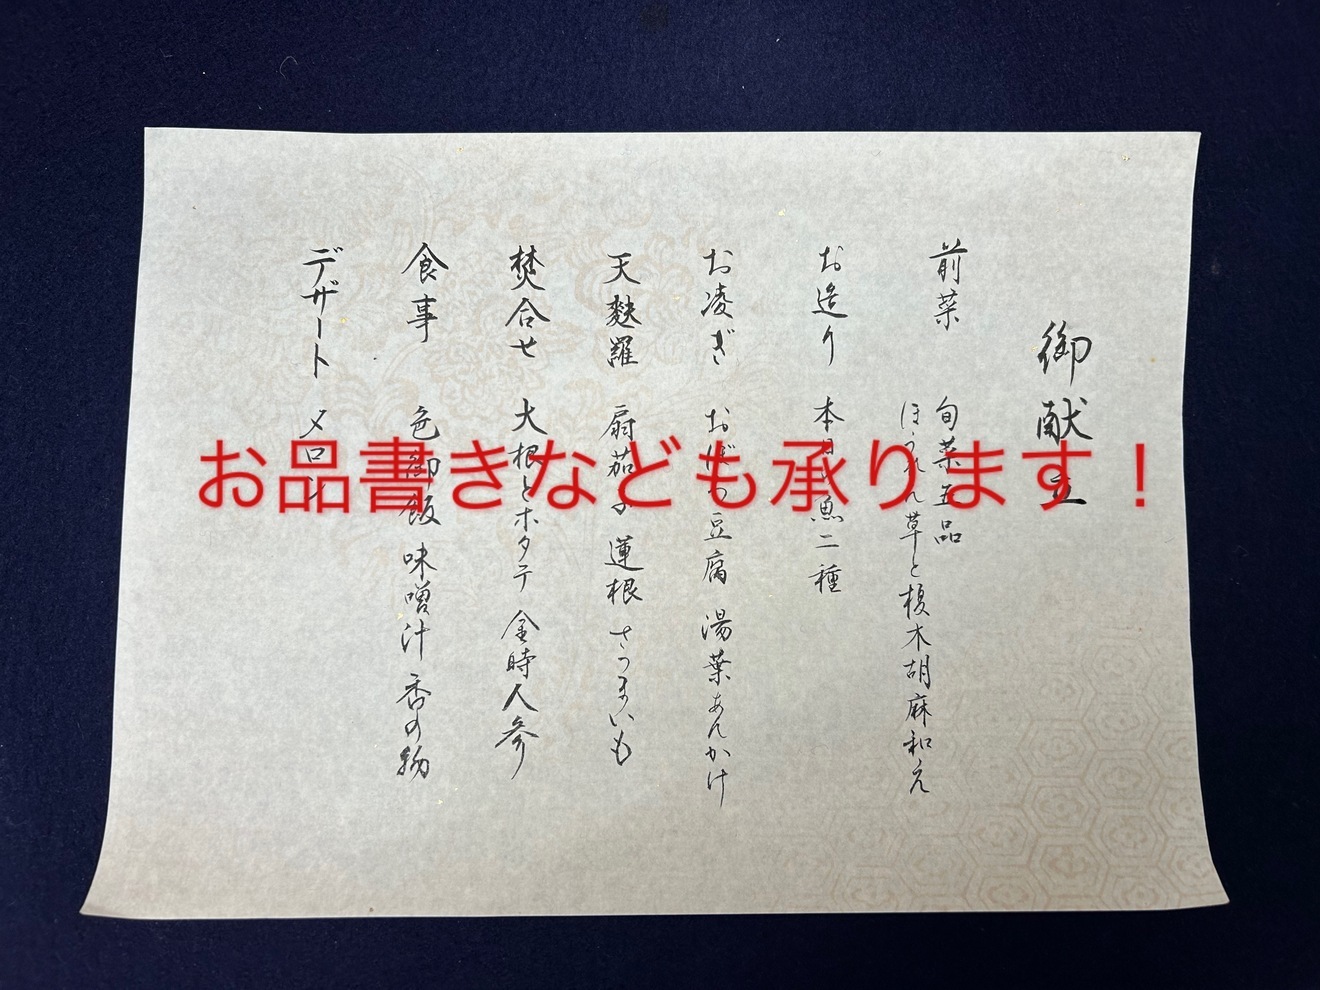 御献立
前菜
旬菜五品
ほうれん草と榎木胡麻和え
お造り 本日の魚二種
お凌ぎ おぼろ豆腐 湯葉あんかけ
天麩羅 扇茄子 蓮根 さつまいも
焚合せ 大根とホタテ 金時人参
食事 色御飯 味噌汁 香の物
デザート メロン
お品書きなども承ります！